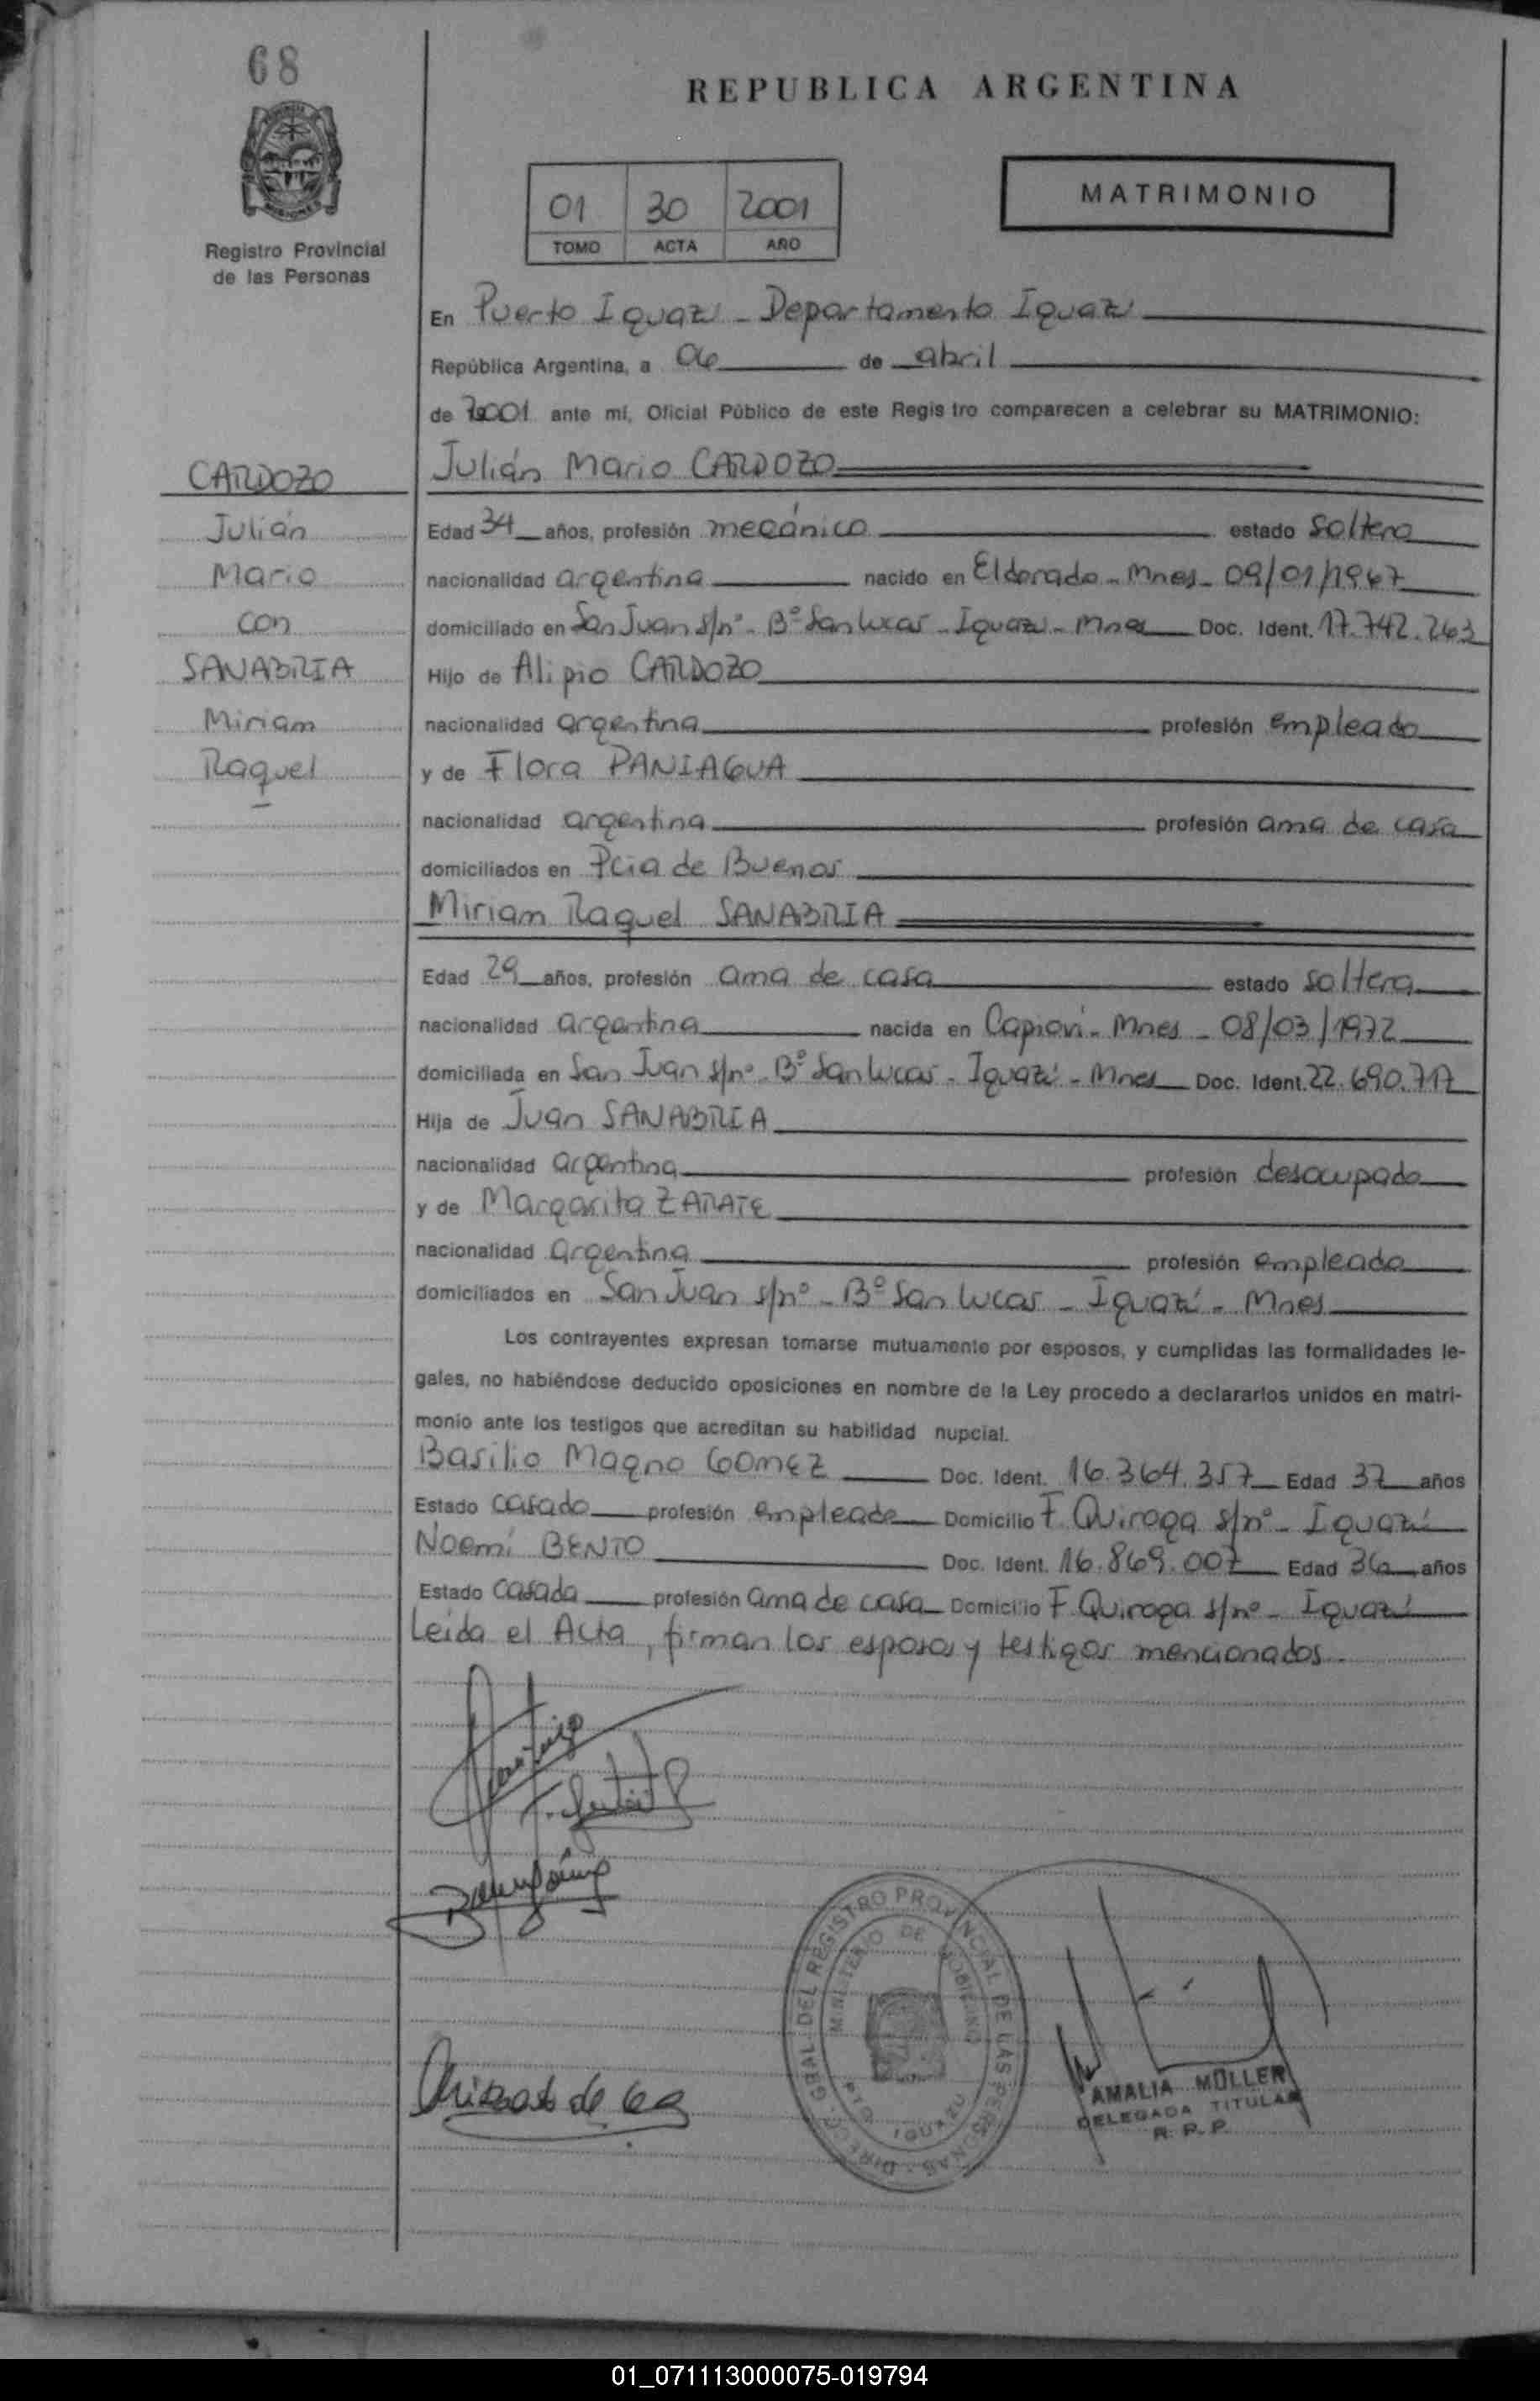 68
REPUBLICA ARGENTINA
Registro Provincial
de las Personas
01 30 2001
TOMO ACTA AÑO
MATRIMONIO
En Puerto Iguazú - Departamento Iguazú
República Argentina, a 06 de abril
de 2001 ante mí, Oficial Público de este Registro comparecen a celebrar su MATRIMONIO:
CARDOZO
Julián
Mario
con
SANABRIA
Miriam
Raquel
Julián Mario CARDOZO
Edad 34 años, profesión mecánico estado soltero
nacionalidad argentina nacido en Eldorado - Mnes - 09/01/1967
domiciliado en San Juan s/nº - Bº San Lucas - Iguazú - Mnes Doc. Ident. 17.742.263
Hijo de Alipio CARDOZO
nacionalidad argentina profesión empleado
y de Flora PANIAGUA
nacionalidad argentina profesión ama de casa
domiciliados en Pcia de Buenos
Miriam Raquel SANABRIA
Edad 29 años, profesión ama de casa estado soltera
nacionalidad argentina nacida en Capioví - Mnes - 08/03/1972
domiciliada en San Juan s/nº - Bº San Lucas - Iguazú - Mnes Doc. Ident. 22.690.717
Hija de Juan SANABRIA
nacionalidad argentina profesión desocupado
y de Margarita ZARATE
nacionalidad argentina profesión empleada
domiciliados en San Juan s/nº - Bº San Lucas - Iguazú - Mnes
Los contrayentes expresan tomarse mutuamente por esposos, y cumplidas las formalidades le-
gales, no habiéndose deducido oposiciones en nombre de la Ley procedo a declararlos unidos en matri-
monio ante los testigos que acreditan su habilidad nupcial.
Basilio Magno GOMEZ Doc. Ident. 16.364.357 Edad 37 años
Estado casado profesión empleado Domicilio F. Quiroga s/nº - Iguazú
Noemí BENTO Doc. Ident. 16.869.007 Edad 36 años
Estado casada profesión ama de casa Domicilio F. Quiroga s/nº - Iguazú
Leída el Acta, firman los esposos y testigos mencionados.
DIREC. GRAL. DEL REGISTRO PROVINCIAL DE LAS PERSONAS
MINISTERIO DE GOBIERNO
IGUAZU
AMALIA MULLER
DELEGADA TITULAR
R. P. P.
01_071113000075-019794